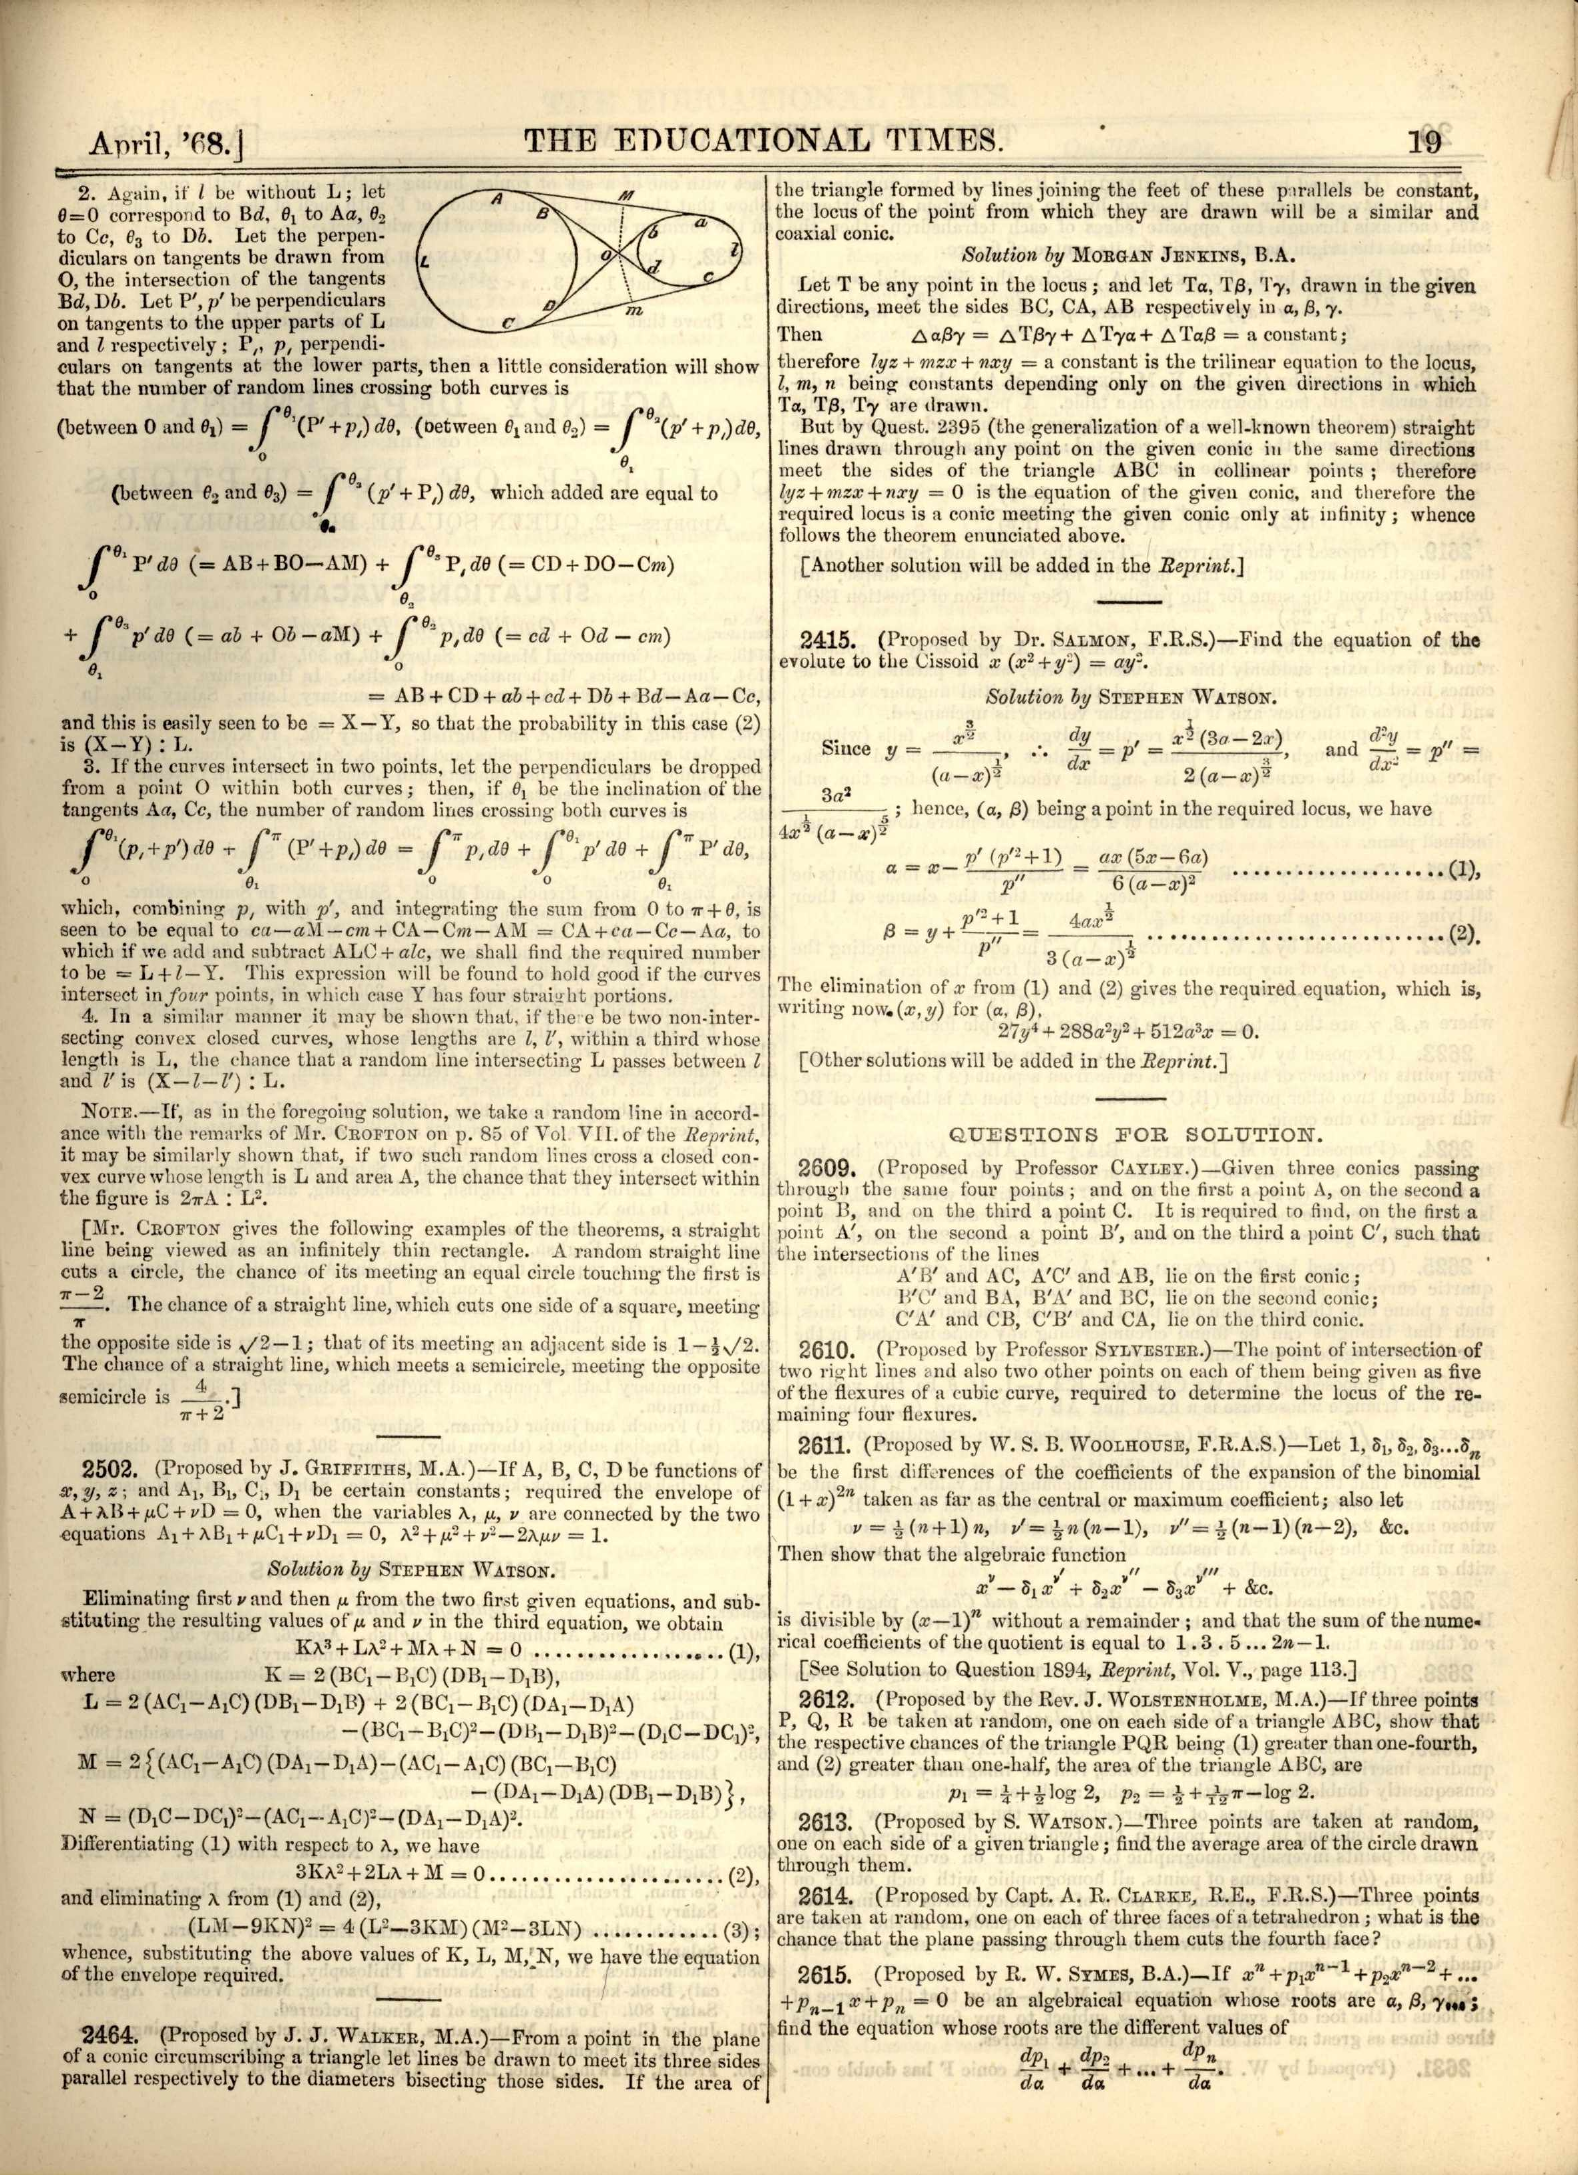 April, '68.]
THE EDUCATIONAL TIMES.
19
2. Again, if l be without L; let
θ=0 correspond to Bd, θ₁ to Aa, θ₂
to Cc, θ₃ to Db. Let the perpen-
diculars on tangents be drawn from
O, the intersection of the tangents
Bd, Db. Let P′, p′ be perpendiculars
on tangents to the upper parts of L
and l respectively; P,, p, perpendi-
culars on tangents at the lower parts, then a little consideration will show
that the number of random lines crossing both curves is
A B M a b O d l c L D m C
(between 0 and θ₁) = ∫₀^θ₁ (P′+p,) dθ, (between θ₁ and θ₂) = ∫_θ₁^θ₂ (p′+p,) dθ,
(between θ₂ and θ₃) = ∫_θ₂^θ₃ (p′+P,) dθ, which added are equal to
∫₀^θ₁ P′dθ (= AB+BO−AM) + ∫_θ₂^θ₃ P,dθ (= CD+DO−Cm)
+ ∫_θ₁^θ₃ p′dθ (= ab + Ob − aM) + ∫₀^θ₂ p,dθ (= cd + Od − cm)
= AB + CD + ab + cd + Db + Bd − Aa − Cc,
and this is easily seen to be = X−Y, so that the probability in this case (2)
is (X−Y) : L.
3. If the curves intersect in two points, let the perpendiculars be dropped
from a point O within both curves; then, if θ₁ be the inclination of the
tangents Aa, Cc, the number of random lines crossing both curves is
∫₀^θ₁ (p,+p′) dθ + ∫_θ₁^π (P′+p,) dθ = ∫₀^π p,dθ + ∫₀^θ₁ p′dθ + ∫_θ₁^π P′dθ,
which, combining p, with p′, and integrating the sum from 0 to π+θ, is
seen to be equal to ca−aM−cm+CA−Cm−AM = CA+ca−Cc−Aa, to
which if we add and subtract ALC+alc, we shall find the required number
to be = L+l−Y. This expression will be found to hold good if the curves
intersect in four points, in which case Y has four straight portions.
4. In a similar manner it may be shown that, if there be two non-inter-
secting convex closed curves, whose lengths are l, l′, within a third whose
length is L, the chance that a random line intersecting L passes between l
and l′ is (X−l−l′) : L.
NOTE.—If, as in the foregoing solution, we take a random line in accord-
ance with the remarks of Mr. CROFTON on p. 85 of Vol. VII. of the Reprint,
it may be similarly shown that, if two such random lines cross a closed con-
vex curve whose length is L and area A, the chance that they intersect within
the figure is 2πA : L².
[Mr. CROFTON gives the following examples of the theorems, a straight
line being viewed as an infinitely thin rectangle. A random straight line
cuts a circle, the chance of its meeting an equal circle touching the first is
(π−2)/π. The chance of a straight line, which cuts one side of a square, meeting
the opposite side is √2−1; that of its meeting an adjacent side is 1−½√2.
The chance of a straight line, which meets a semicircle, meeting the opposite
semicircle is 4/(π+2).]
2502. (Proposed by J. GRIFFITHS, M.A.)—If A, B, C, D be functions of
x, y, z; and A₁, B₁, C₁, D₁ be certain constants; required the envelope of
A+λB+μC+νD = 0, when the variables λ, μ, ν are connected by the two
equations A₁+λB₁+μC₁+νD₁ = 0, λ²+μ²+ν²−2λμν = 1.
Solution by STEPHEN WATSON.
Eliminating first ν and then μ from the two first given equations, and sub-
stituting the resulting values of μ and ν in the third equation, we obtain
Kλ³+Lλ²+Mλ+N = 0 .....................(1),
where K = 2(BC₁−B₁C)(DB₁−D₁B),
L = 2(AC₁−A₁C)(DB₁−D₁B) + 2(BC₁−B₁C)(DA₁−D₁A)
−(BC₁−B₁C)²−(DB₁−D₁B)²−(D₁C−DC₁)²,
M = 2{(AC₁−A₁C)(DA₁−D₁A)−(AC₁−A₁C)(BC₁−B₁C)
−(DA₁−D₁A)(DB₁−D₁B)},
N = (D₁C−DC₁)²−(AC₁−A₁C)²−(DA₁−D₁A)².
Differentiating (1) with respect to λ, we have
3Kλ²+2Lλ+M = 0........................(2),
and eliminating λ from (1) and (2),
(LM−9KN)² = 4(L²−3KM)(M²−3LN) ............(3);
whence, substituting the above values of K, L, M, N, we have the equation
of the envelope required.
2464. (Proposed by J. J. WALKER, M.A.)—From a point in the plane
of a conic circumscribing a triangle let lines be drawn to meet its three sides
parallel respectively to the diameters bisecting those sides. If the area of
the triangle formed by lines joining the feet of these parallels be constant,
the locus of the point from which they are drawn will be a similar and
coaxial conic.
Solution by MORGAN JENKINS, B.A.
Let T be any point in the locus; and let Tα, Tβ, Tγ, drawn in the given
directions, meet the sides BC, CA, AB respectively in α, β, γ.
Then △αβγ = △Tβγ + △Tγα + △Tαβ = a constant;
therefore lyz + mzx + nxy = a constant is the trilinear equation to the locus,
l, m, n being constants depending only on the given directions in which
Tα, Tβ, Tγ are drawn.
But by Quest. 2395 (the generalization of a well-known theorem) straight
lines drawn through any point on the given conic in the same directions
meet the sides of the triangle ABC in collinear points; therefore
lyz + mzx + nxy = 0 is the equation of the given conic, and therefore the
required locus is a conic meeting the given conic only at infinity; whence
follows the theorem enunciated above.
[Another solution will be added in the Reprint.]
2415. (Proposed by Dr. SALMON, F.R.S.)—Find the equation of the
evolute to the Cissoid x(x²+y²) = ay².
Solution by STEPHEN WATSON.
Since y = x^(3/2)/(a−x)^(1/2), ∴ dy/dx = p′ = x^(1/2)(3a−2x)/2(a−x)^(3/2), and d²y/dx² = p″ =
3a²/4x^(1/2)(a−x)^(5/2); hence, (α, β) being a point in the required locus, we have
α = x − p′(p′²+1)/p″ = ax(5x−6a)/6(a−x)² .....................(1),
β = y + (p′²+1)/p″ = 4ax^(1/2)/3(a−x)^(1/2) ..............................(2).
The elimination of x from (1) and (2) gives the required equation, which is,
writing now (x, y) for (α, β),
27y⁴ + 288a²y² + 512a³x = 0.
[Other solutions will be added in the Reprint.]
QUESTIONS FOR SOLUTION.
2609. (Proposed by Professor CAYLEY.)—Given three conics passing
through the same four points; and on the first a point A, on the second a
point B, and on the third a point C. It is required to find, on the first a
point A′, on the second a point B′, and on the third a point C′, such that
the intersections of the lines
A′B′ and AC, A′C′ and AB, lie on the first conic;
B′C′ and BA, B′A′ and BC, lie on the second conic;
C′A′ and CB, C′B′ and CA, lie on the third conic.
2610. (Proposed by Professor SYLVESTER.)—The point of intersection of
two right lines and also two other points on each of them being given as five
of the flexures of a cubic curve, required to determine the locus of the re-
maining four flexures.
2611. (Proposed by W. S. B. WOOLHOUSE, F.R.A.S.)—Let 1, δ₁, δ₂, δ₃...δₙ
be the first differences of the coefficients of the expansion of the binomial
(1+x)²ⁿ taken as far as the central or maximum coefficient; also let
ν = ½(n+1)n, ν′ = ½n(n−1), ν″ = ½(n−1)(n−2), &c.
Then show that the algebraic function
x^ν − δ₁x^ν′ + δ₂x^ν″ − δ₃x^ν‴ + &c.
is divisible by (x−1)ⁿ without a remainder; and that the sum of the nume-
rical coefficients of the quotient is equal to 1.3.5...2n−1.
[See Solution to Question 1894, Reprint, Vol. V., page 113.]
2612. (Proposed by the Rev. J. WOLSTENHOLME, M.A.)—If three points
P, Q, R be taken at random, one on each side of a triangle ABC, show that
the respective chances of the triangle PQR being (1) greater than one-fourth,
and (2) greater than one-half, the area of the triangle ABC, are
p₁ = ¼+½log 2, p₂ = ½+1/12π−log 2.
2613. (Proposed by S. WATSON.)—Three points are taken at random,
one on each side of a given triangle; find the average area of the circle drawn
through them.
2614. (Proposed by Capt. A. R. CLARKE, R.E., F.R.S.)—Three points
are taken at random, one on each of three faces of a tetrahedron; what is the
chance that the plane passing through them cuts the fourth face?
2615. (Proposed by R. W. SYMES, B.A.)—If xⁿ + p₁xⁿ⁻¹ + p₂xⁿ⁻² + ...
+pₙ₋₁x + pₙ = 0 be an algebraical equation whose roots are α, β, γ...;
find the equation whose roots are the different values of
dp₁/dα + dp₂/dα + ... + dpₙ/dα.